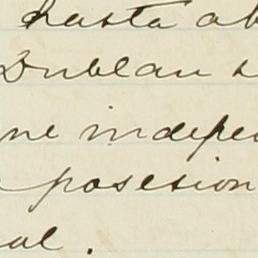 hasta ab
Dublan s
ne indepe
posesion
al.